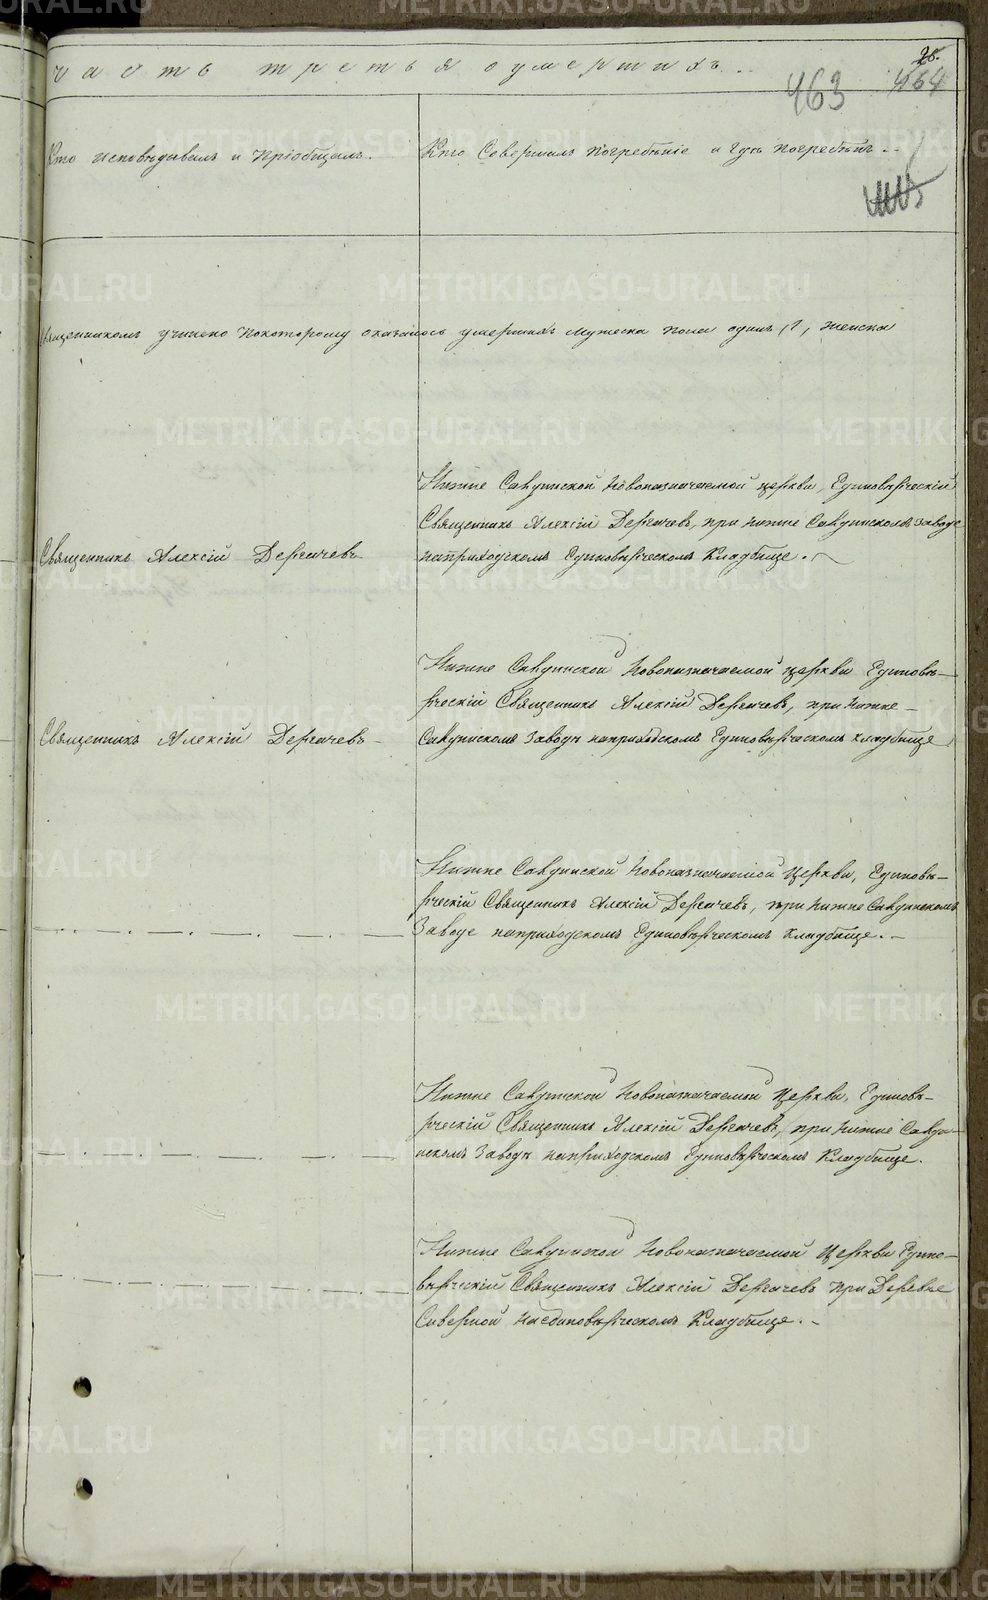 часть третья о умершихъ.
26.
463
464
Кто исповѣдавалъ и пріобщалъ.
Кто Совершалъ погребѣніе и гдѣ погребѣнъ.
Священникомъ учинено покоторому оказалось умершихъ мужеска пола одинъ, 1, женска
Нижне Салдинской новоназначаемой церкви, Единовѣрческій
Священникъ Алексій Дергачевъ, при нижне Салдинскомъ заводе
наприходскомъ Единовѣрческомъ Кладбище.
Священникъ Алексій Дергачевъ
Нижне Салдинской новоназначаемой церкви Единовѣ-
рческій Священникъ Алексій Дергачевъ, при нижне-
Салдинскомъ заводѣ наприходскомъ Единовѣрческомъ кладбище
Священникъ Алексій Дергачевъ
Нижне Салдинской новоназначаемой Церкви, Единовѣ-
рческій Священникъ Алексій Дергачевъ, при нижне Салдинскомъ
Заводе наприходскомъ Единовѣрческомъ кладбище.
Нижне Салдинской новоназначаемой Церкви, Единовѣ-
рческій Священникъ Алексій Дергачевъ, при нижне Салди-
нскомъ заводѣ наприходскомъ Единовѣрческомъ Кладбище.
Нижне Салдинской новоназначаемой Церкви Едино-
вѣрческій Священникъ Алексій Дергачевъ при Деревне
Северной наединовѣрческомъ Кладбище.
METRIKI.GASO-URAL.RU